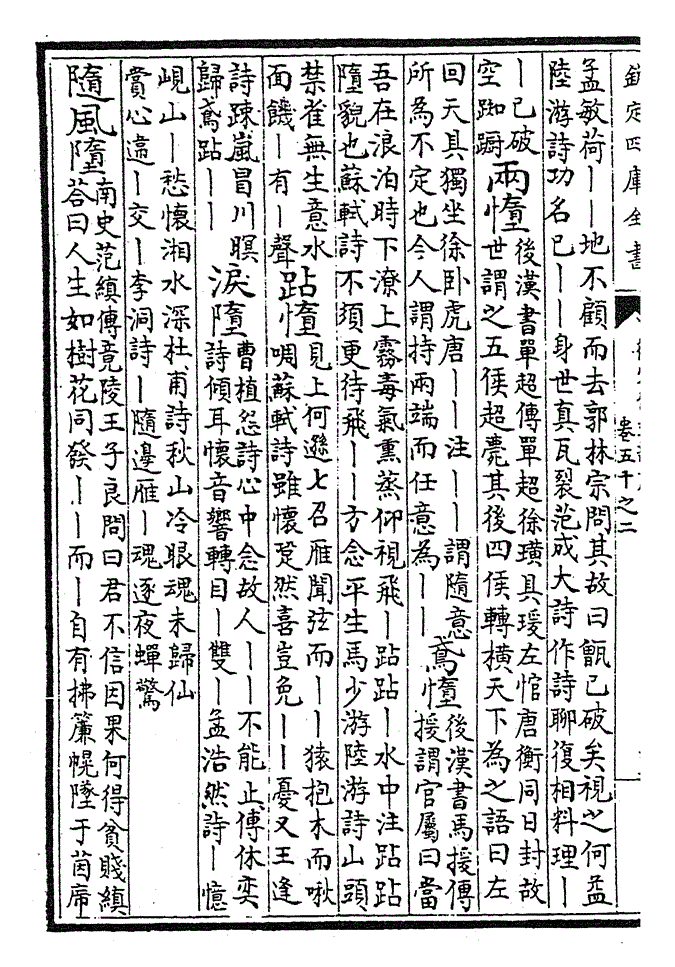 欽定四庫全書
卷五十之二
孟敏荷丨丨地不顧而去郭林宗問其故曰甑已破矣視之何益
陸游詩功名已丨丨身世真瓦裂范成大詩作詩聊復相料理丨
丨已破
空踟躕
兩墮
後漢書單超傳單超徐璜具瑗左悺唐衡同日封故
世謂之五侯超薨其後四侯轉橫天下為之語曰左
回天具獨坐徐臥虎唐丨丨注丨丨謂隨意
所為不定也今人謂持兩端而任意為丨丨
鳶墮
後漢書馬援傳
援謂官屬曰當
吾在浪泊時下潦上霧毒氣熏蒸仰視飛丨跕跕丨水中注跕跕
墮貌也蘇軾詩不須更待飛丨丨方念平生馬少游陸游詩山頭
禁雀無生意水
面饑丨有丨聲
跕墮
見上何遜七召雁聞弦而丨丨猿抱木而啾
啁蘇軾詩雖懷跫然喜豈免丨丨憂又王逢
詩踈嵐冒川暝
歸鳶跕丨丨
淚墮
曹植怨詩心中念故人丨丨不能止傅休奕
詩傾耳懷音響轉目丨雙丨孟浩然詩丨憶
峴山丨愁懷湘水深杜甫詩秋山冷眼魂未歸仙
賞心違丨交丨李洞詩丨隨邊雁丨魂逐夜蟬驚
隨風墮
南史范縝傳竟陵王子良問曰君不信因果何得貧賤縝
答曰人生如樹花同發丨丨而丨自有拂簾幌墜于茵席